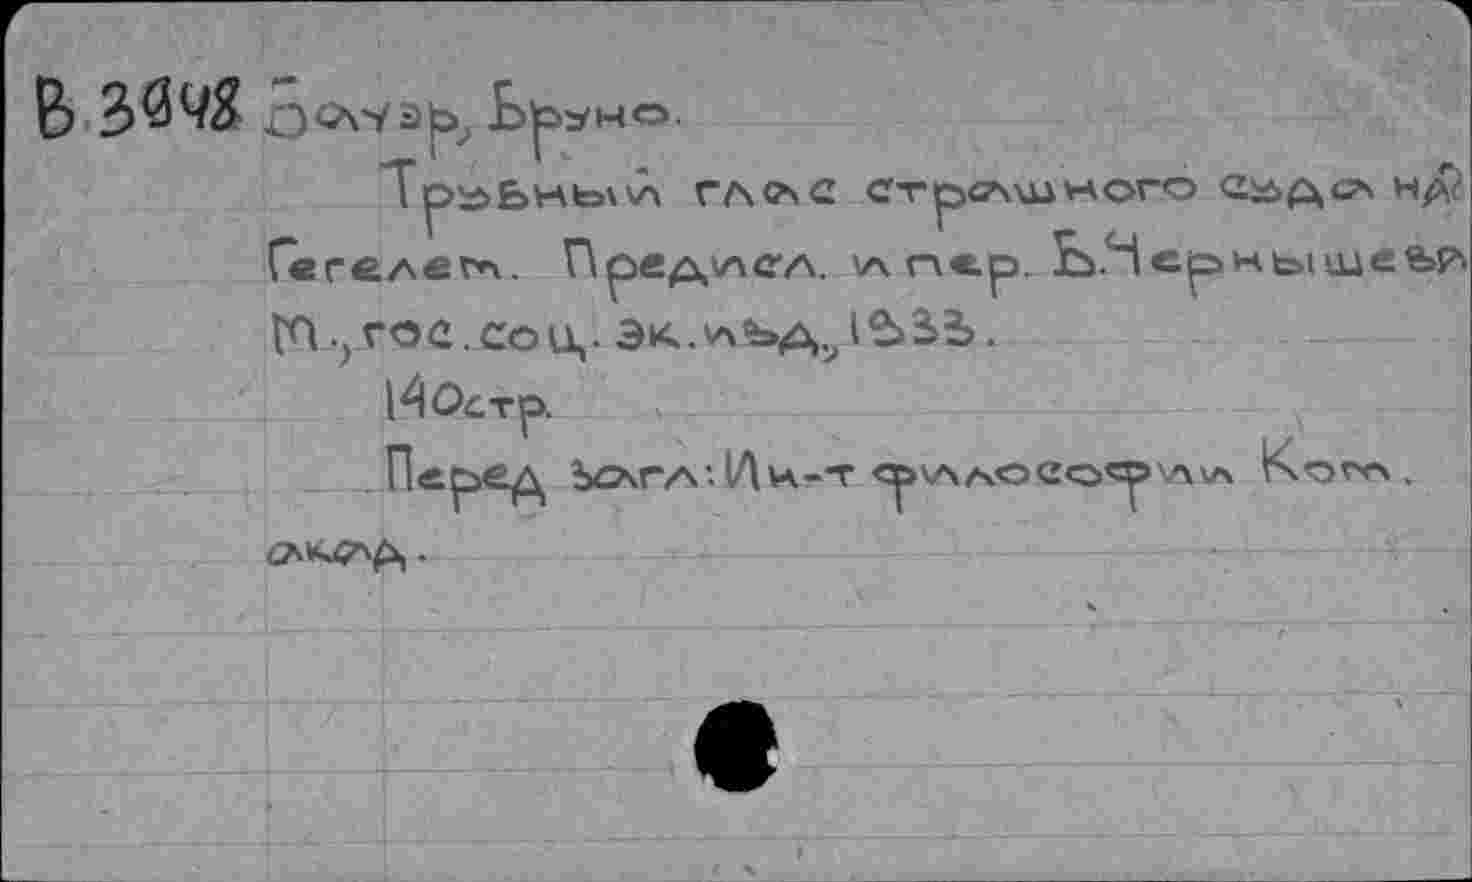 В 3848 Бауэр, Бруно.
Трубный глас страшного суда над
Гегелем. Предисл. и пер. Б.Чернышева
М., гос. соц. эк. изд., 1933.
140стр.
Перед загл: Ин-т философии Ком.
акад.